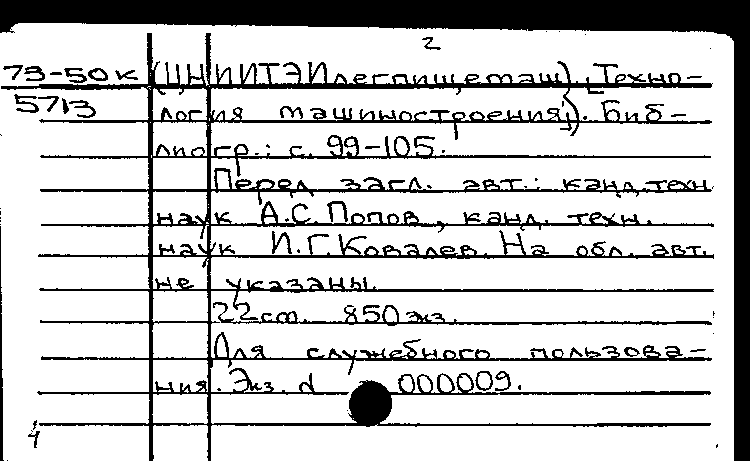 2
73-50к (ЦНИИТЭИлегпищемаш). [Техно-
5713 логия машиностроения]). Биб-
лиогр.: с. 99-105.
Перед загл. авт.: канд. техн
наук А.С. Попов, канд. техн.
наук И.Г. Ковалев. На обл. авт.
не указаны.
22 см. 850 экз.
Для служебного пользова-
ния. Экз. d 000009.
4